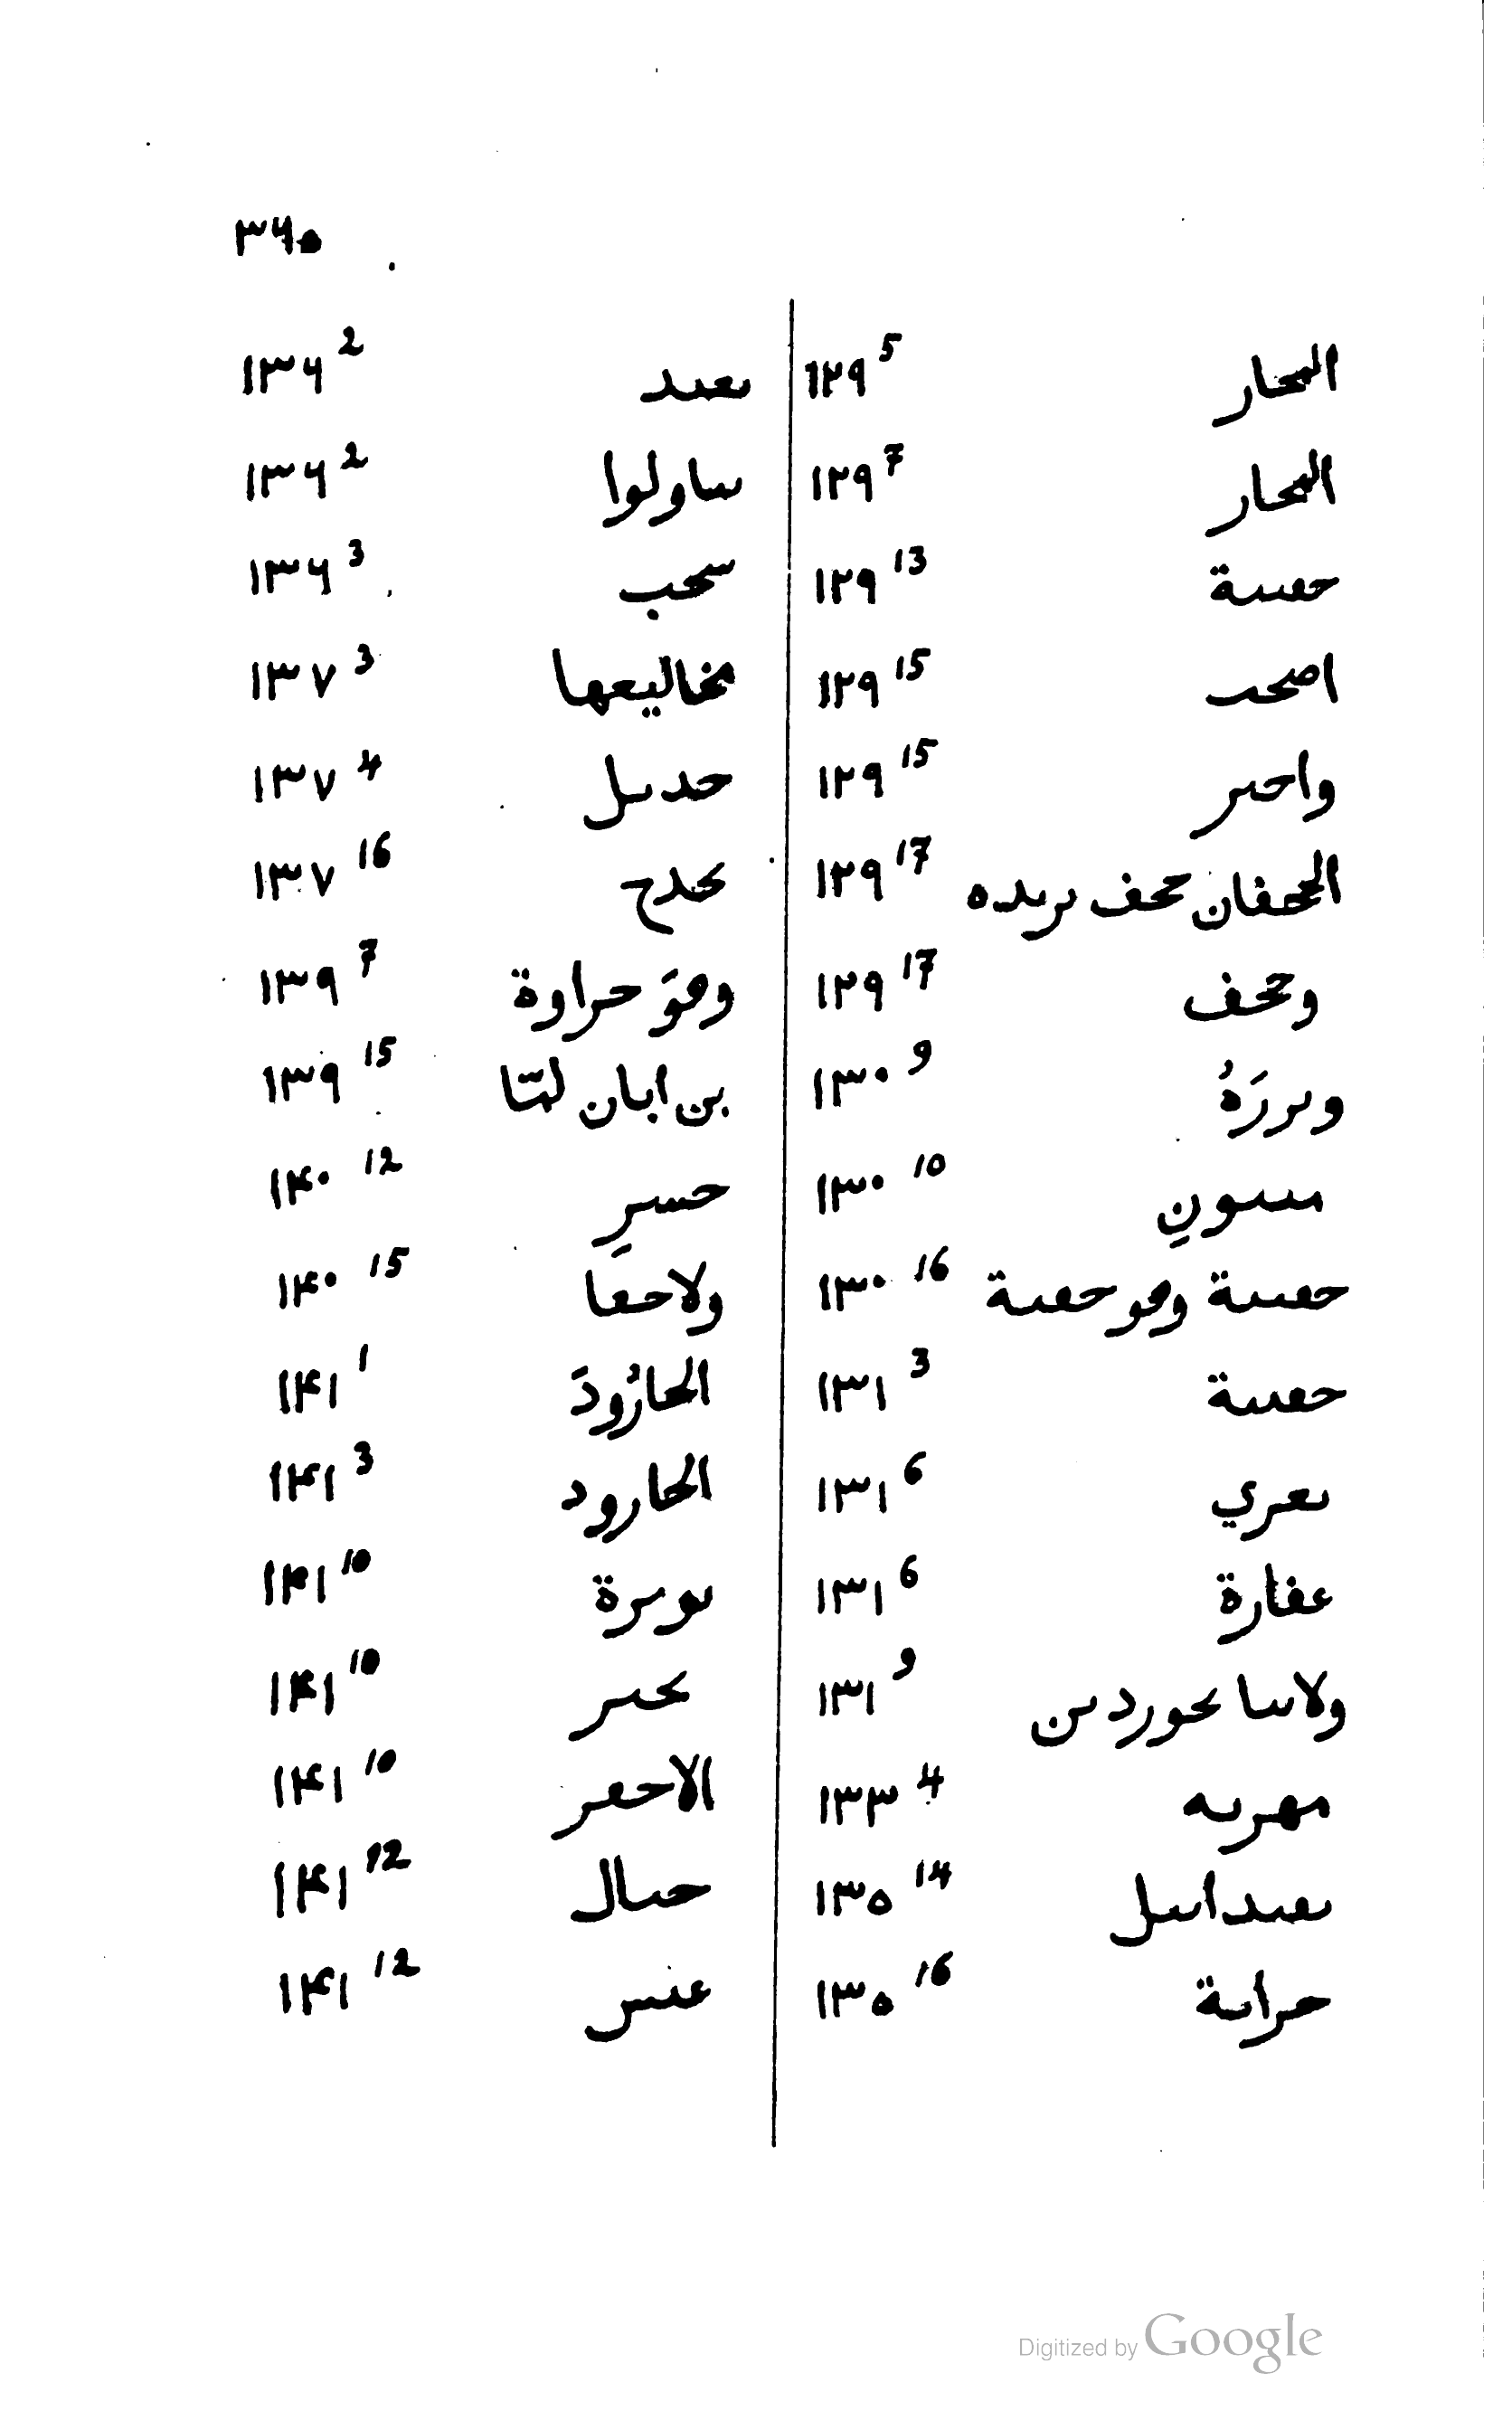 ٣٤٥
البحار ١٢٩ 5
البحار ١٢٩ 7
حعىىة ١٢٩ 13
اصحٮ ١٢٩ 15
واحٮر ١٢٩ 15
الححفان محف ٮرٮده ١٢٩ 17
وححف ١٢٩ 17
وٮررَهُ ١٣٠ 9
مٮسونِ ١٣٠ 10
حعىىة وهو حعىة ١٣٠ 16
حعىىة ١٣١ 3
ٮعري ١٣١ 6
عفارة ١٣١ 6
ولاٮىا ٮحورد ٮىن ١٣١ 9
مهرٮه ١٣٣ 4
ٮعٮد اٮىل ١٣٥ 14
حراٮة ١٣٥ 16
ٮعٮد ١٣٦ 2
ٮىاولوا ١٣٦ 2
سحب ١٣٦ 3
مخاليعها ١٣٧ 3
حدٮل ١٣٧ 4
ٮحدح ١٣٧ 16
وهوَ حراوة ١٣٩ 7
بن ابان لتّا ١٣٩ 15
حسرِ ١٤٠ 12
ولاحقَا ١٤٠ 15
الحارُودَ ١٤١ 1
الحارود ١٤١ 3
ٮوٮرة ١٤١ 10
ٮحٮر ١٤١ 10
الاحعر ١٤١ 10
حٮال ١٤١ 12
عٮس ١٤١ 12
Digitized by Google